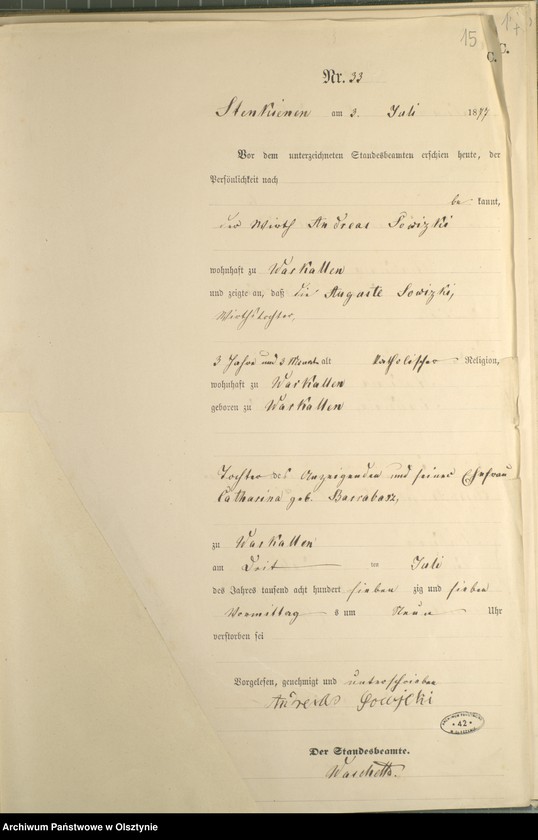 15
C.
C.
Nr. 33
Stenkienen am 3. Juli 1877
Vor dem unterzeichneten Standesbeamten erschien heute, der
Persönlichkeit nach
be kannt,
der Wirth Andreas Sowizki
wohnhaft zu Warkallen
und zeigte an, daß die Auguste Sowizki,
Wirthstochter,
3 Jahre und 3 Monate alt katholischer Religion,
wohnhaft zu Warkallen
geboren zu Warkallen
Tochter des Anzeigenden und seiner Ehefrau
Catharina geb. Barrabasz,
zu Warkallen
am ten Juli
des Jahres tausend acht hundert sieben zig und sieben
Vormittag s um Neun Uhr
verstorben sei
Vorgelesen, genehmigt und unterschrieben
Andreas Sowizki
42
Der Standesbeamte.
Archiwum Państwowe w Olsztynie